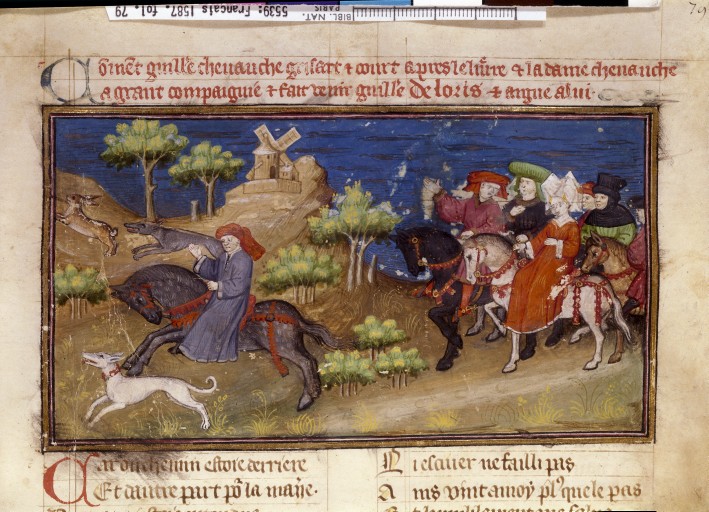 BIBL. NAT. PARIS 5539: Français 1587. fol. 79
79
guille cheuauche grisart & court apres le liure & la dame cheuauche
a grant compaignie & fait venir guille De loris & a lui.
Car ou chemin estoie derriere
Et dautre part po la
Li escuier ne failli pas
Ains vint a moy pl' que le pas